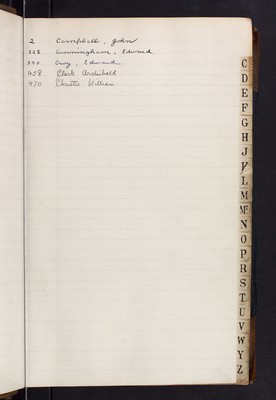 2 Campbell, John
228 Cunningham, Edward
390 Croy, Edward
458 Clark Archibald
470 Christie William
C
D
E
F
G
H
J
K
L
M
Mc
N
O
P
R
S
T
U
V
W
Y
Z